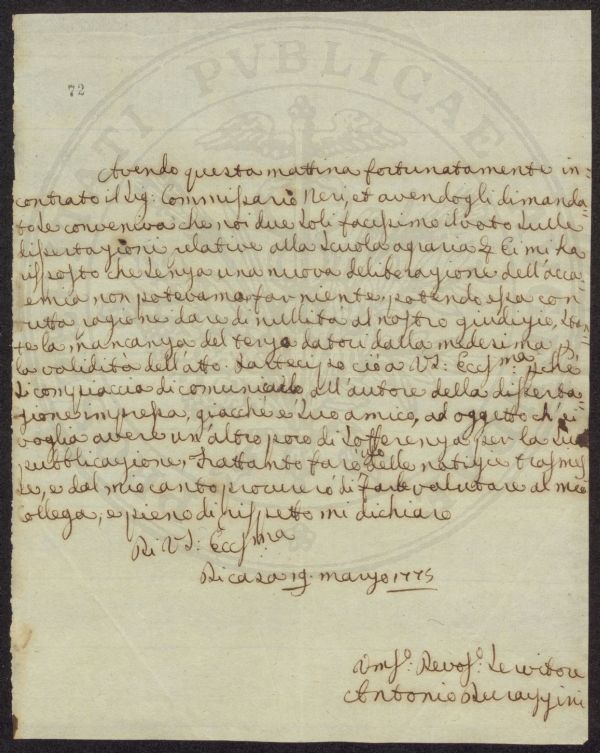 72
Avendo questa mattina fortunatamente in=
contrato il Sig: Commissario Neri, et avendogli dimanda=
to se conveniva che noi due soli facessimo il voto sulle
dissertazioni relative alla scuola agraria & Ei mi ha
risposto che senza una nuova deliberazione dell'acca=
emia non potevamo far niente, potendo essa con
tutta ragione dare di nullità al nostro giudizio, 
te la mancanza del terzo datoci dalla medesima p
la validità dell'atto. Partecipo ciò a VS: Eccma pche
si compiaccia di comunicarlo all'autore della disserta=
zione impressa, giacche è suo amico, ad oggetto ch'ei
voglia avere un'altro poco di sofferenza per la sua
pubblicazione, Frattanto farò delle notizie trasmes
se, e dal mio canto procurerò di farle valutare al mio
Collega, e pieno di rispetto mi dichiaro
Di VS: Eccma
Di casa 19. marzo 1775
Umso. Devoso. Servitore
Antonio
STATI PVBLICAE